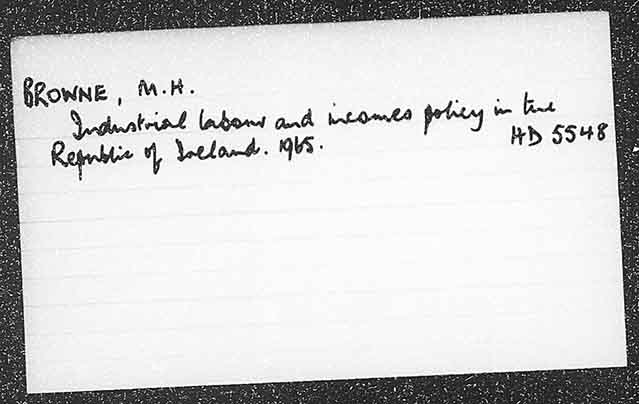 BROWNE, M.H.
Industrial labour and incomes policy in the
Republic of Ireland. 1965.
HD 5548